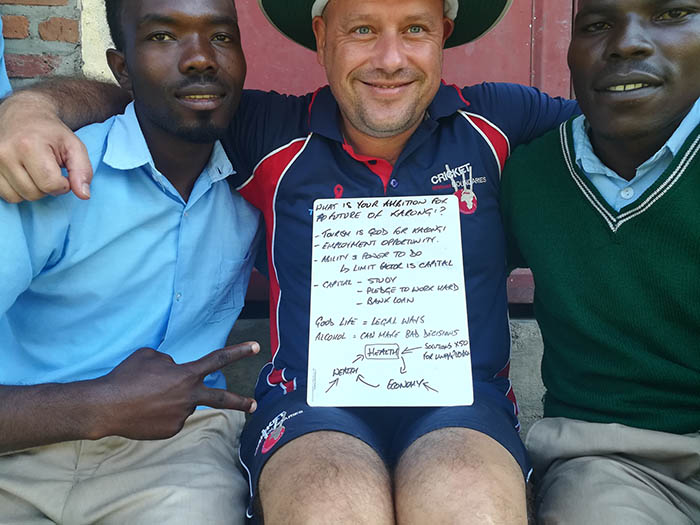 CRICKET
WITHOUT BOUNDARIES
WHAT IS YOUR AMBITION FOR
FUTURE OF KARONGI?
- TOURISM IS GOOD FOR KARONGI
- EMPLOYMENT OPPORTUNITY.
- ABILITY & POWER TO DO
↳ LIMIT FACTOR IS CAPITAL
- CAPITAL - STUDY
- PLEDGE TO WORK HARD
- BANK LOAN
GOOD LIFE = LEGAL WAYS
ALCOHOL = CAN MAKE BAD DECISIONS
HEALTH
SOLUTIONS
FOR
WEALTH
ECONOMY